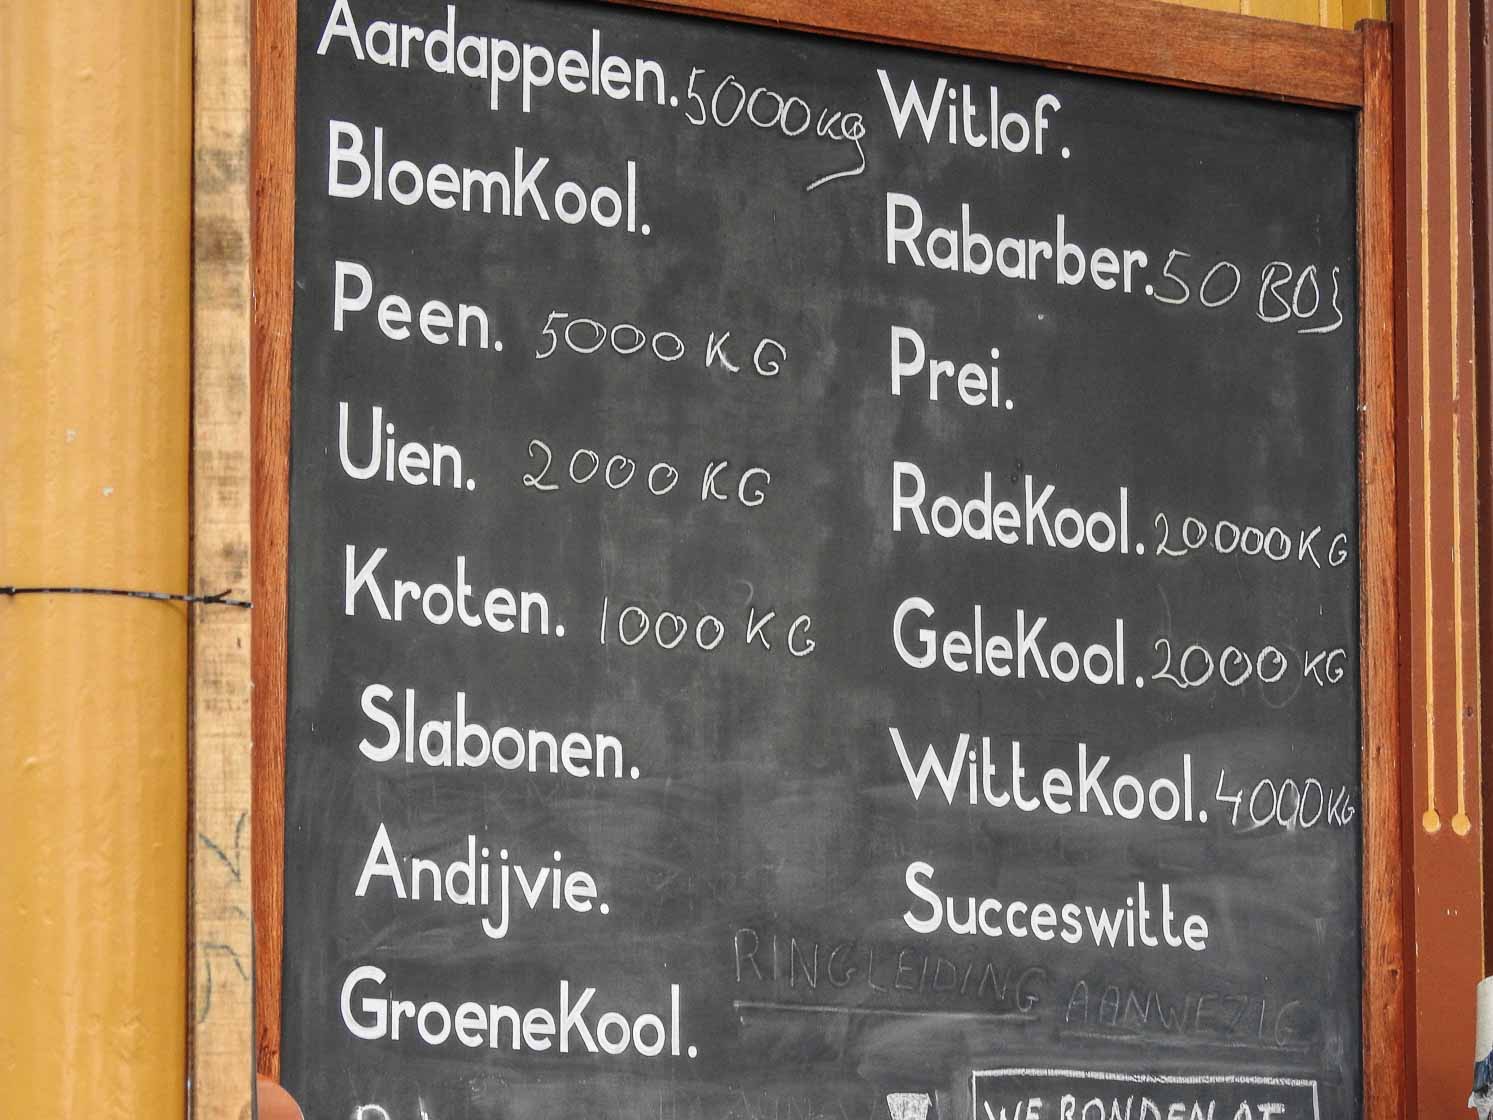 Aardappelen. 5000 kg
BloemKool.
Peen. 5000 KG
Uien. 2000 KG
Kroten. 1000 KG
Slabonen.
Andijvie.
GroeneKool.
Witlof.
Rabarber. 50 BOS
Prei.
RodeKool. 20.000 KG
GeleKool. 2000 KG
WitteKool. 4000 KG
Succeswitte
RINGLEIDING AANWEZIG
WE RONDEN AF